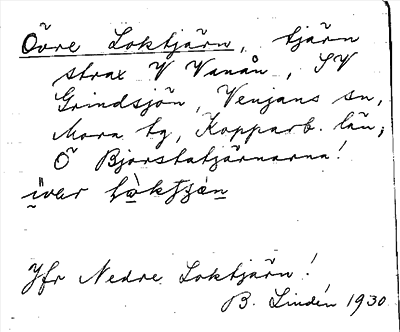 Övre Loktjärn, tjärn
strax V Vanån, SV
Grindsjön, Venjans sn,
Mora tg, Kopparb. län,
Ö Björstatjärnarna!
Jfr Nedre Loktjärn!
B. Lindén 1930